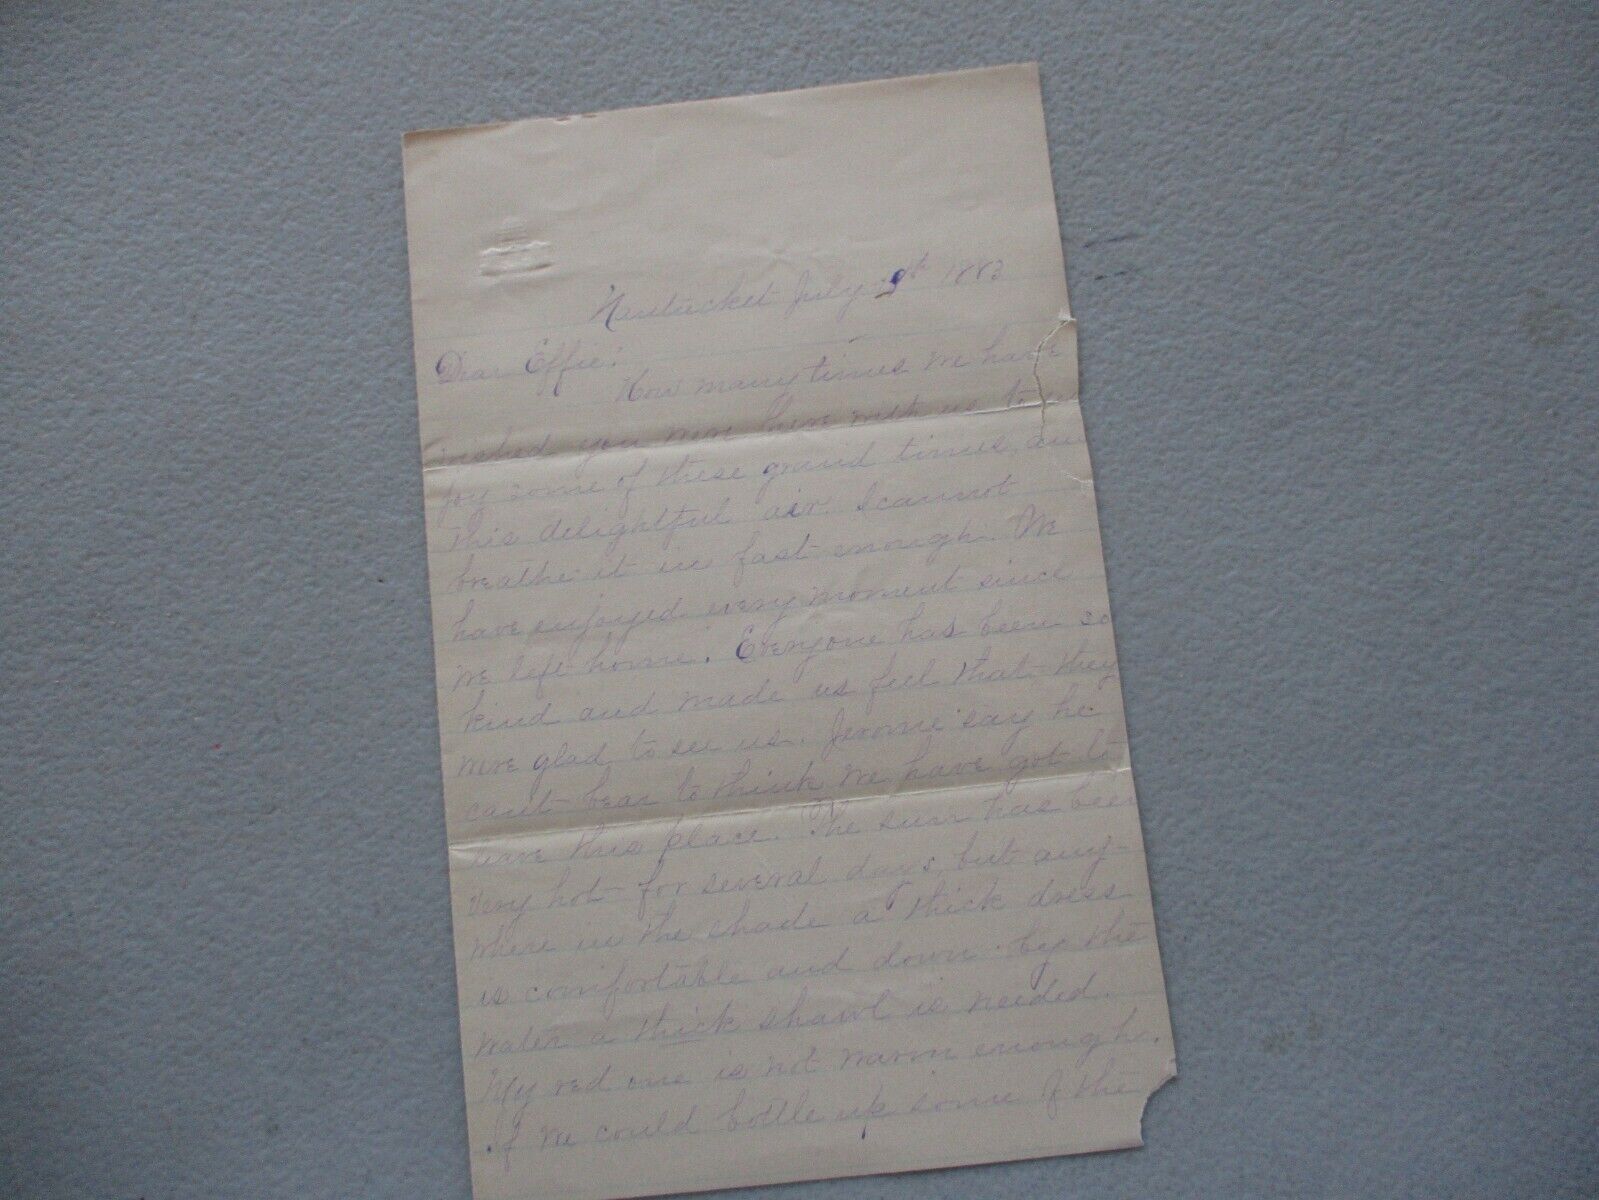 Nantucket July 9th 1882
Dear Effie!
How many times we have
wished you were here with us to en
joy some of these grand times, and
this delightful air. I cannot
breathe it in fast enough. We
have enjoyed every moment since
we left home. Everyone has been so
kind and made us feel that they
were glad to see us. Jerome say he
can't bear to think we have got to
leave this place. The sun has been
very hot for several days, but any-
where in the shade a thick dress
is comfortable and down by the
water a thick shawl is needed.
My red one is not warm enough.
If we could bottle up some of the